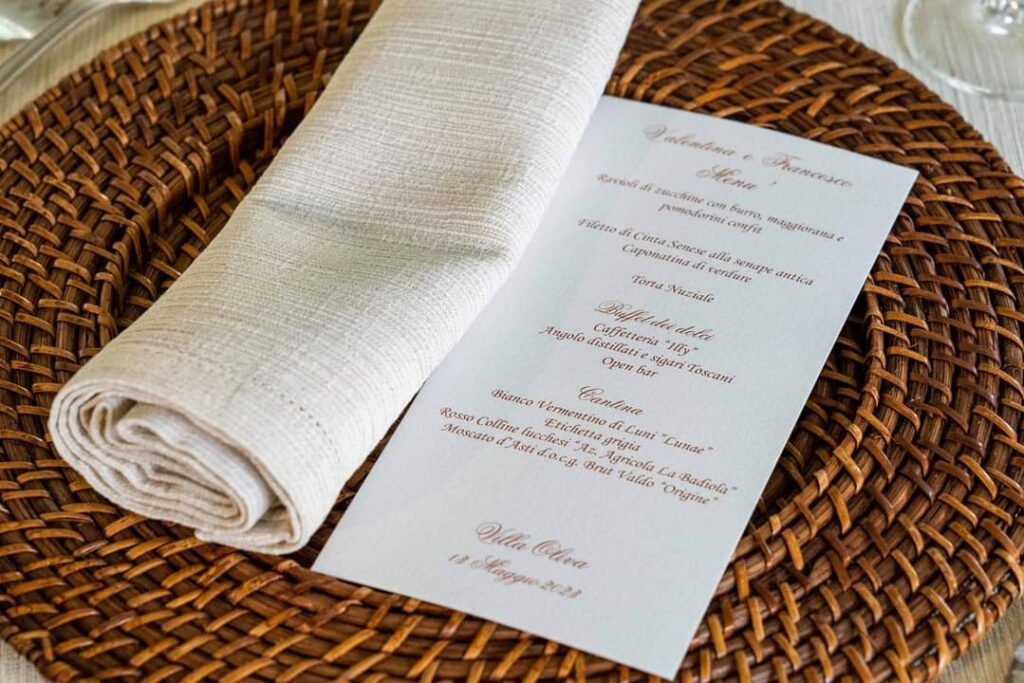 Valentina e Francesco
Menu'
Ravioli di zucchine con burro, maggiorana e
pomodorini confit
Filetto di Cinta Senese alla senape antica
Caponatina di verdure
Torta Nuziale
Buffet dei dolci
Caffetteria "Illy"
Angolo distillati e sigari Toscani
Open bar
Cantina
Bianco Vermentino di Luni "Lunae"
Etichetta grigia
Rosso Colline lucchesi "Az. Agricola La Badiola"
Moscato d'Asti d.o.c.g. Brut Valdo "Origine"
Villa Oliva
18 Maggio 2023